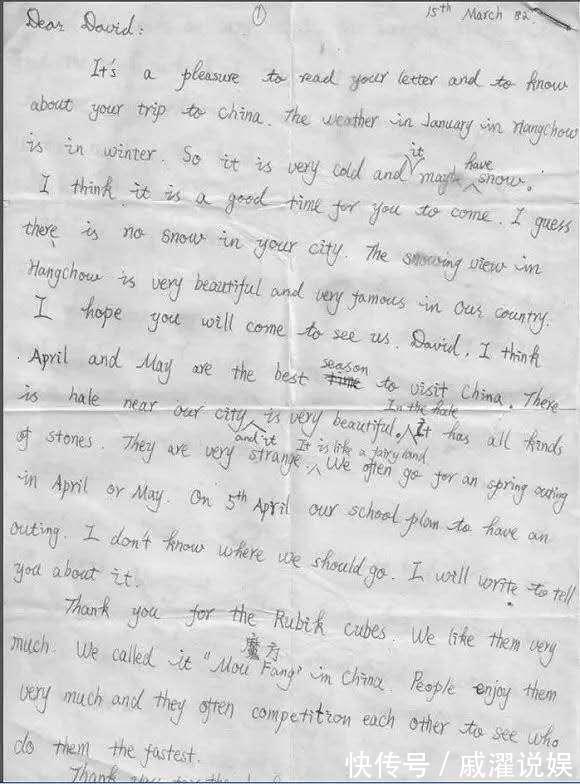 ①
15th March 82
Dear David:
It's a pleasure to read your letter and to know
about your trip to China. The weather in January in Hangchow
is in winter. So it is very cold and it maybe have snow.
I think it is a good time for you to come. I guess
there is no snow in your city. The snowing view in
Hangchow is very beautiful and very famous in our country.
I hope you will come to see us. David, I think
April and May are the best season to visit China. There
is hale near our city and it is very beautiful. In the hale it has all kinds
of stones. They are very strange. It is like a fairyland. We often go for an spring outing
in April or May. On 5th April our school plan to have an
outing. I don't know where we should go. I will write to tell
you about it.
Thank you for the Rubik cubes. We like them very
much. We called it "Mou Fang" 魔方 in China. People enjoy them
very much and they often competition each other to see who
do them the fastest.
Thank you for the
快传号／戚濯说娱